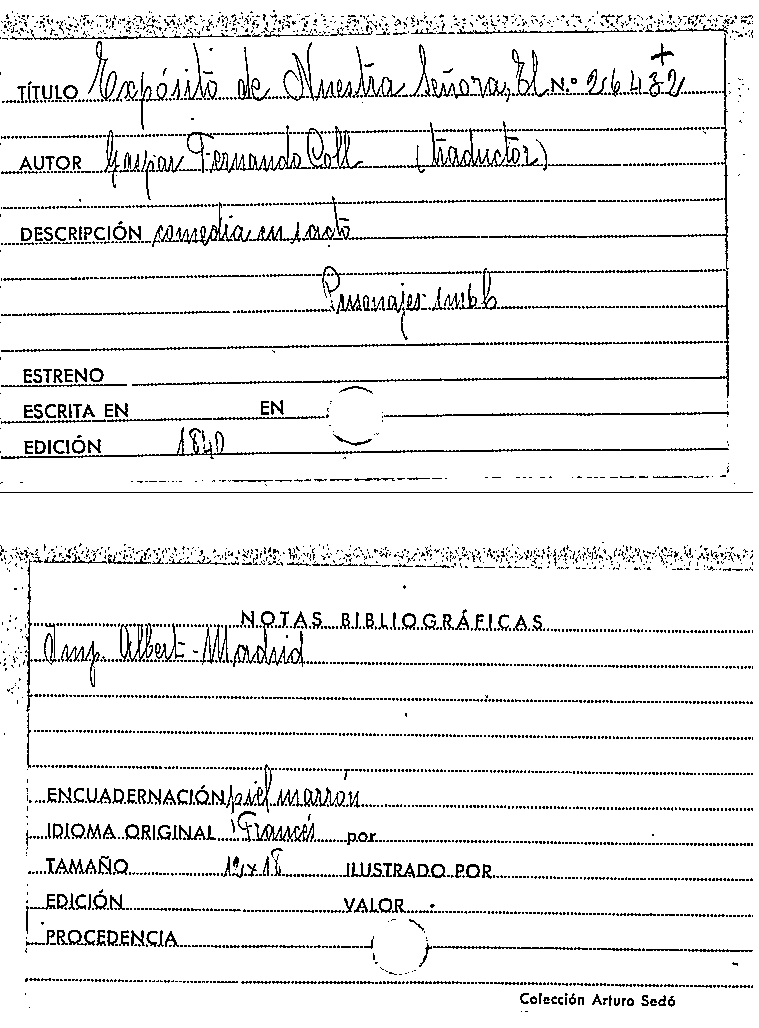 TÍTULO Expósito de Nuestra Señora, El N.º 26432
AUTOR Gaspar Fernando Coll (traductor)
DESCRIPCIÓN comedia en 1 acto
Personajes
ESTRENO
ESCRITA EN EN
EDICIÓN 1840
NOTAS BIBLIOGRÁFICAS
Imp. Albert - Madrid
ENCUADERNACIÓN piel marrón
IDIOMA ORIGINAL Francés por
TAMAÑO 12x18 ILUSTRADO POR
EDICIÓN VALOR
PROCEDENCIA
Colección Arturo Sedó